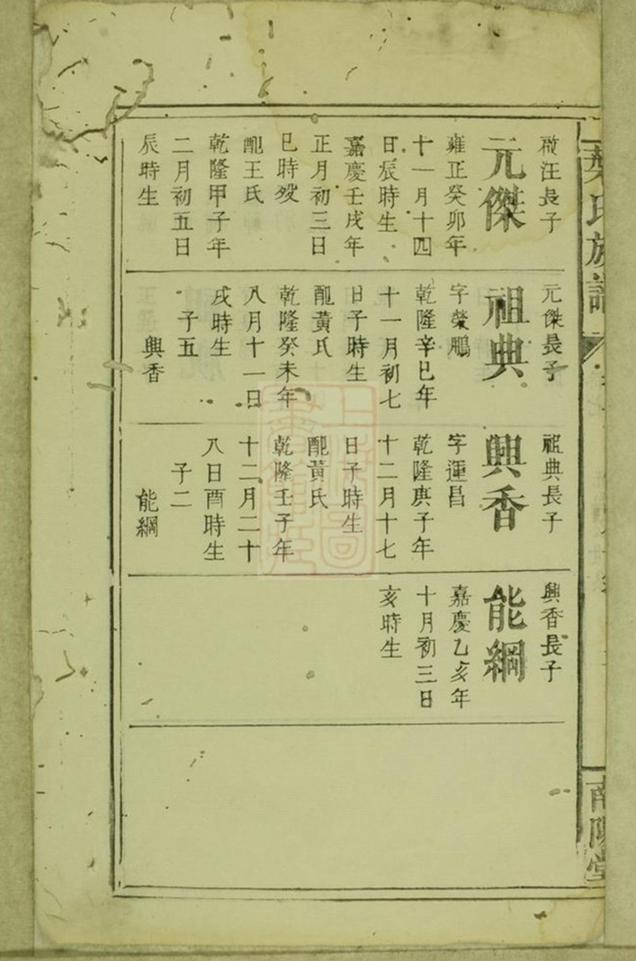 葉氏族譜
南陽堂
啟汪長子
元傑
雍正癸卯年
十一月十四
日辰時生
嘉慶壬戌年
正月初三日
巳時歿
配王氏
乾隆甲子年
二月初五日
辰時生
元傑長子
祖典
字榮鵬
乾隆辛巳年
十一月初七
日子時生
配黃氏
乾隆癸未年
八月十一日
戌時生
子五
興香
祖典長子
興香
字運昌
乾隆庚子年
十二月十七
日子時生
配黃氏
乾隆壬子年
十二月二十
八日酉時生
子二
能綱
興香長子
能綱
嘉慶乙亥年
十月初三日
亥時生